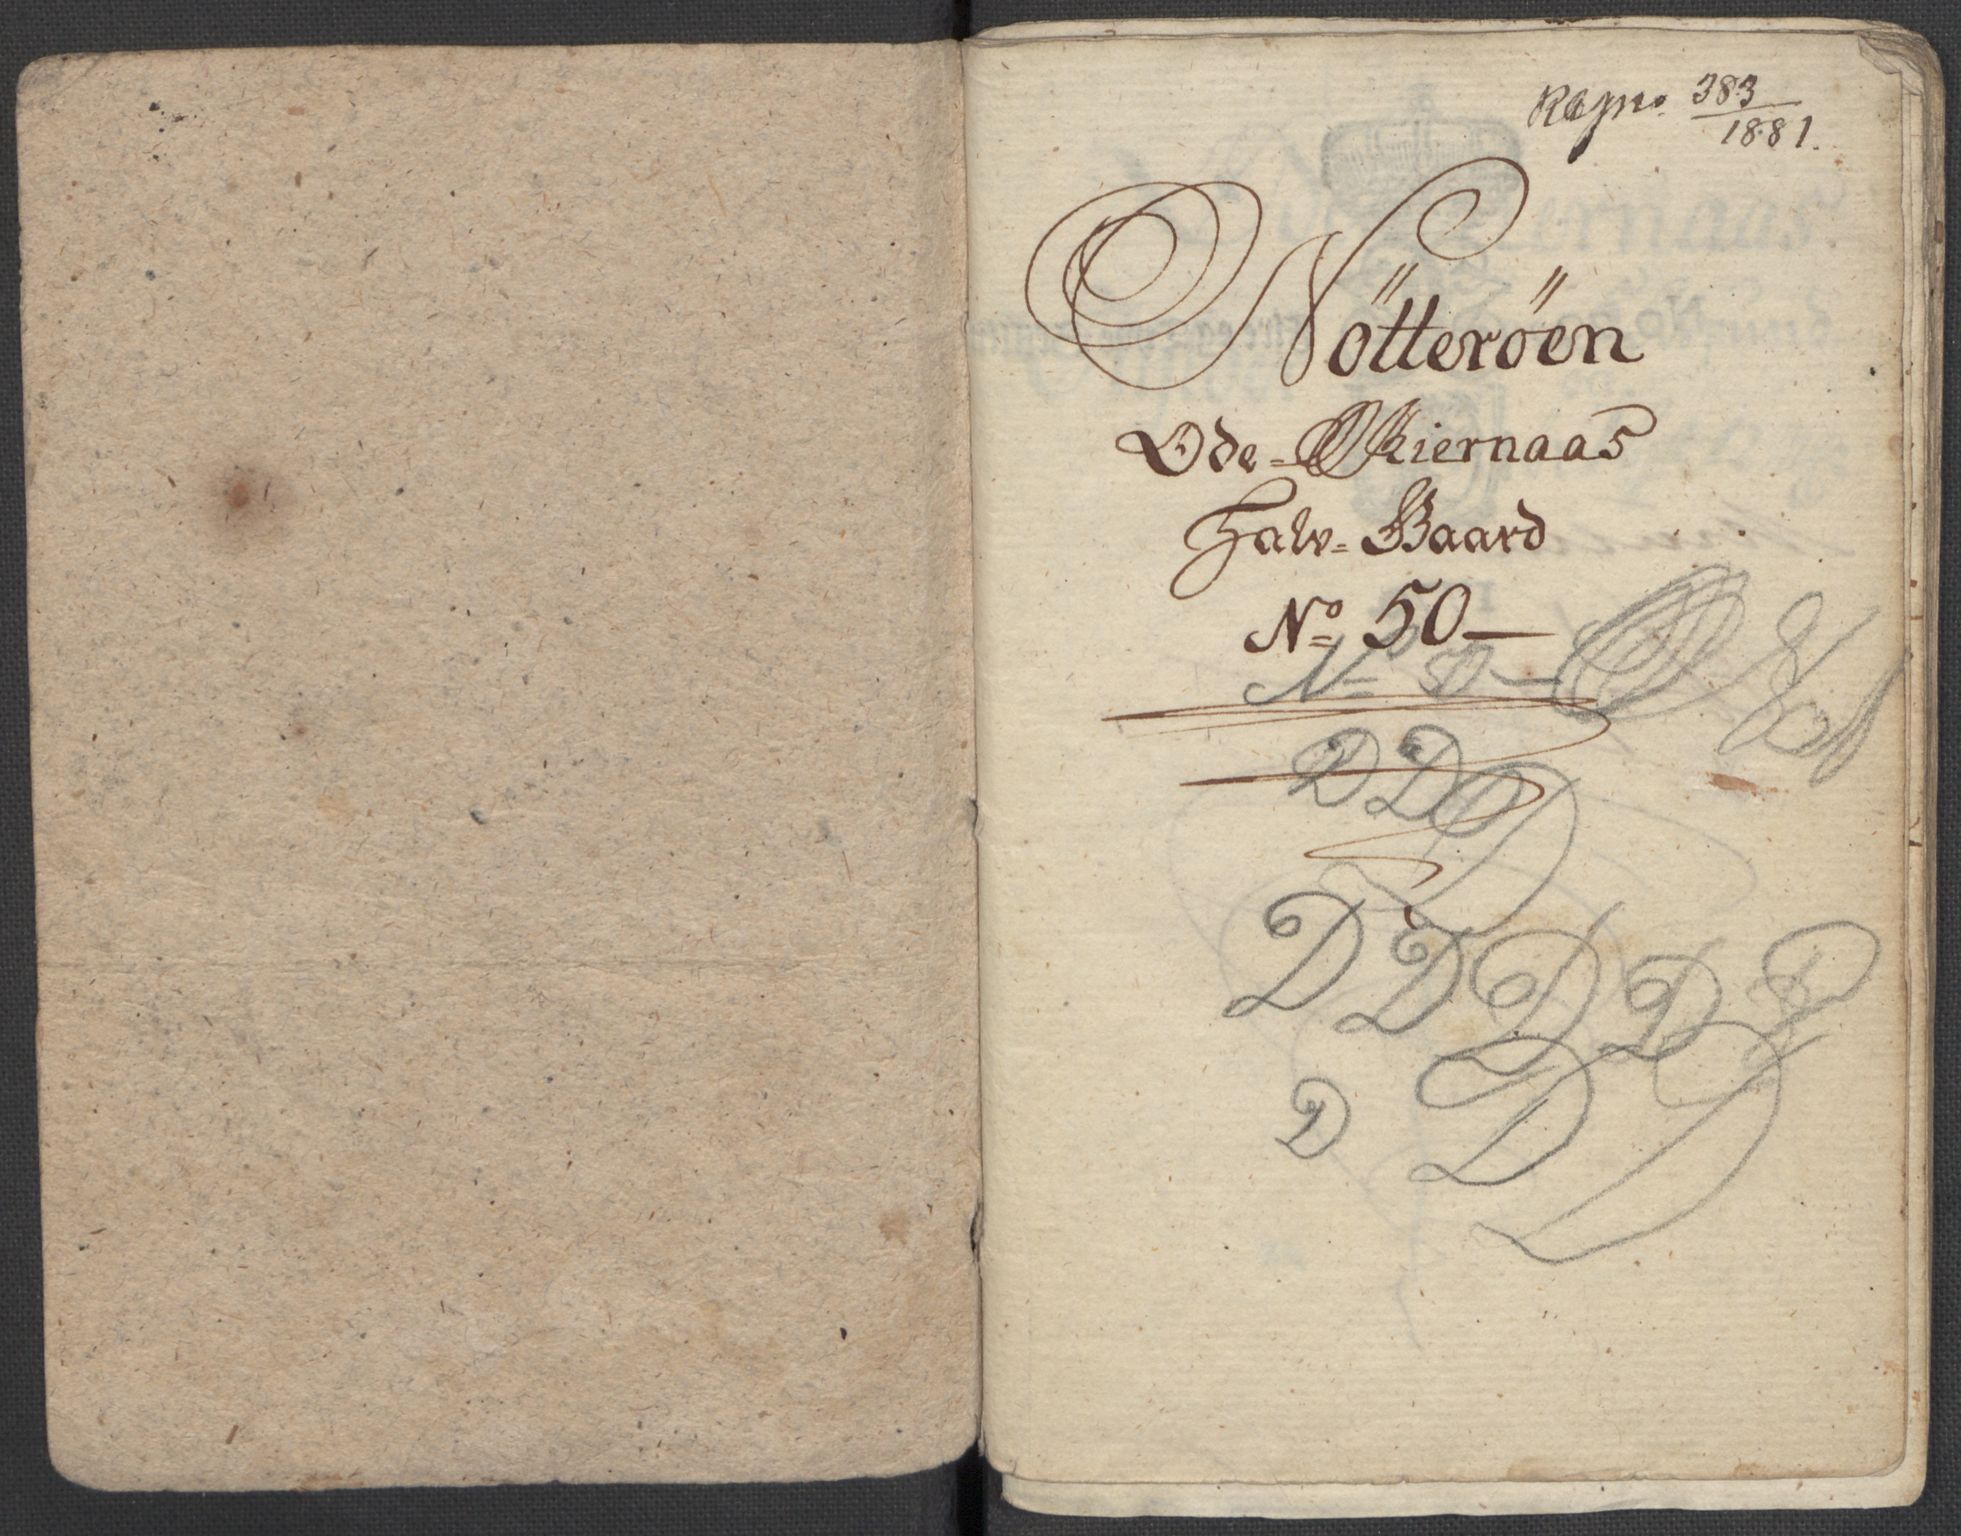 383
1881.
Nötteröen
Ode-Kiernaas
Halv-Gaard
No 50
No
D D D
D D D D D
D D D